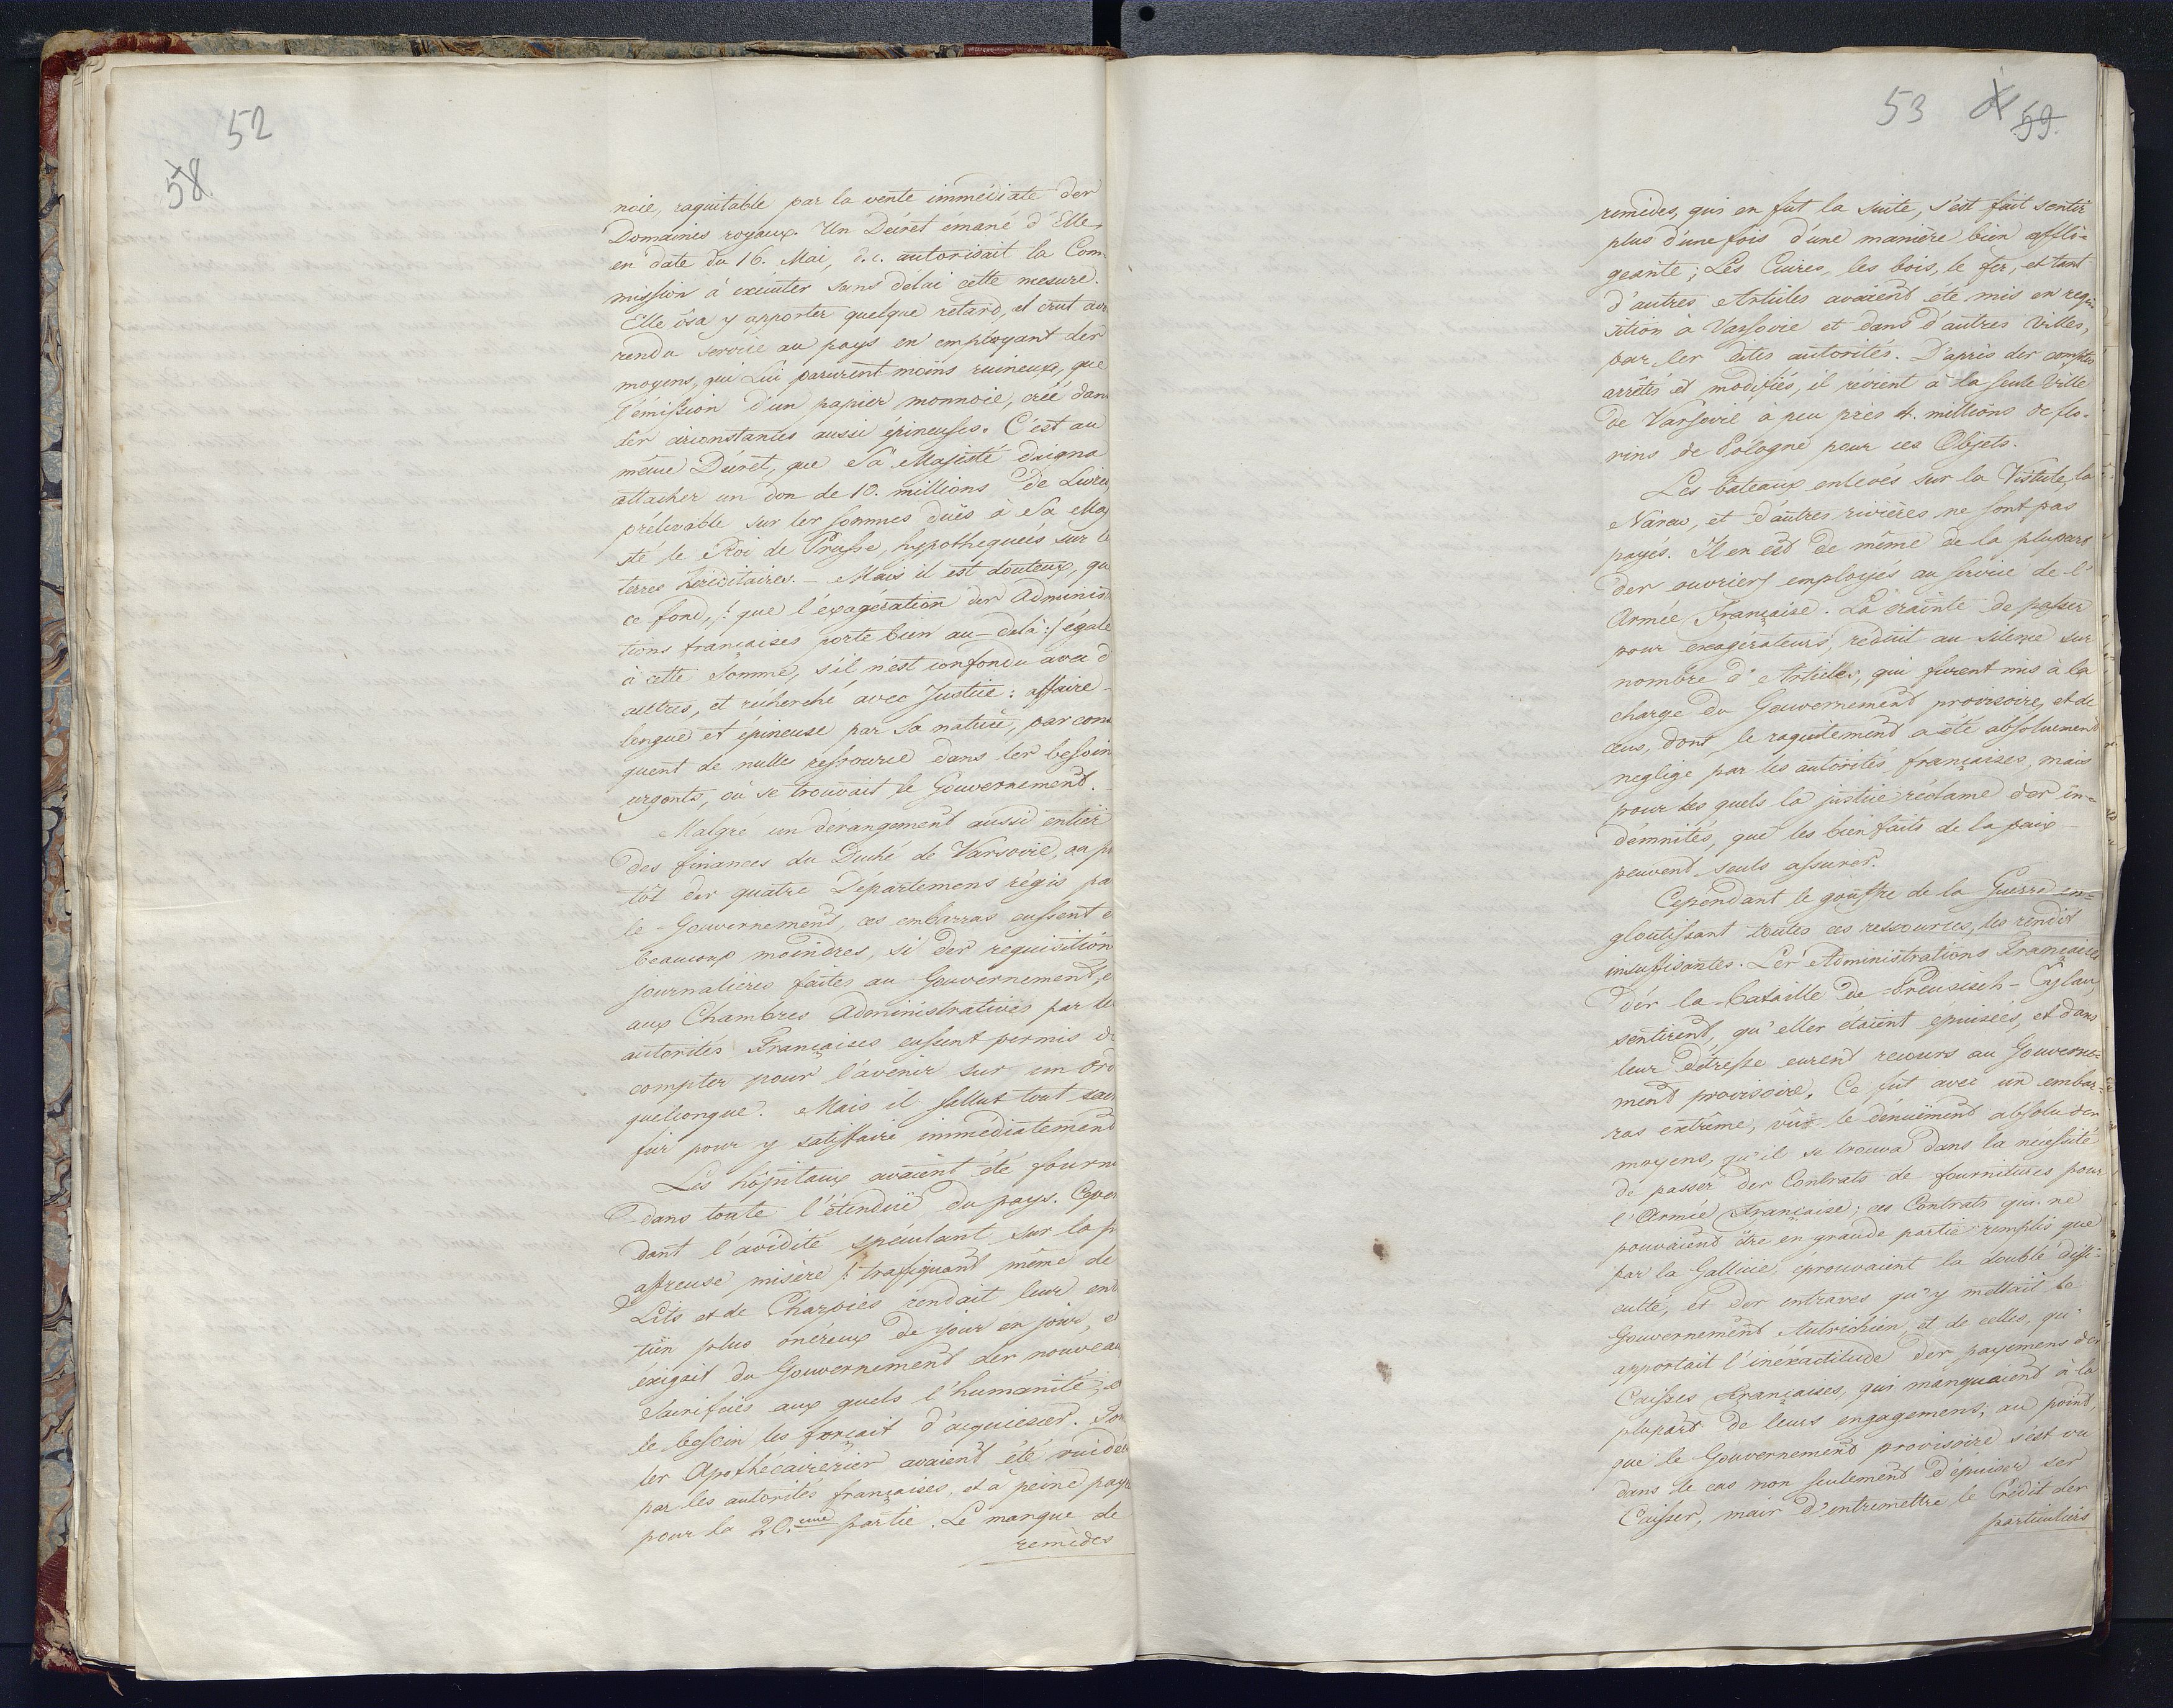 52
58
noie, raquitable par la vente immédiate der
Domaines royaux. Un Décret émané d'Elle,
en date du 16. Mai, d. c. autorisait la Com-
mission à exécuter sans délai cette mesure.
Elle ôsa y apporter quelque retard, et crut avo
rendu service au pays en employant der
moyens, qui Lui parurent moins ruineux, que
l'émission d'un papier monnoie, créé dan
der circonstances aussi épineuses. C'est au
même Décret, que Sa Majesté daigna
attacher un don de 10. millions de Livres,
prélevable sur ler sommes dues à Sa Maj
sté le Roi de Prusse, hypothequées sur le
terres héréditaires. – Mais il est douteux, qu
ce fond, /: que l'éxagération der Adminis
tions françaises porte bien au-delà :/ égale
à cette Somme, s'il n'est confondu avec d
autres, et récherché avec Justice : affaire
longue et épineuse par Sa nature, par cons
quent de nulle ressource dans ler besoin
urgents, où se trouvait le Gouvernement.
Malgré un derangement aussi entier
des finances du Duché de Varsovie, ou plu
tôt der quatre Départemens régis pa
le Gouvernement, ces embarras eussent é
beaucoup moindres, si der requisition
journalières faites au Gouvernement, e
aux Chambres Administratives par le
autorités Françaises eussent permis de
compter pour l'avenir sur un ord
quelconque. Mais il fallut tout sacri
fier pour y satisfaire immédiatement
Les hôpitaux avaient été fourni
dans toute l'étenduë du pays. Cepen
dant l'avidité spéculant sur la p
affreuse misère, trafiquant même de
Lits et de Charpies rendait leur ent
tien plus onéreux de jour en jour, e
éxigait du Gouvernement der nouveau
Sacrifices aux quels l'humanité, e
le besoin les forçait d'acquiescer. Tou
ler Apothécaireries avaient été vuidée
par les autorités françaises, et à peine payé
pour la 20.eme partie. Le manque de
remèdes
53
59.
remèdes, qui en fut la suite, s'est fait sentir
plus d'une fois d'une manière bien affli-
geante ; Les Cuirs, les bois, le fer, et tant
d'autres Articles avaient été mis en requi
sition à Varsovie et dans d'autres villes,
par ler dites autorités. D'après der comptes
arrêtés et modifiés, il révient à la seule Ville
de Varsovie à peu près 4. millions de flo-
rins de Pologne pour ces Objets.
Les bateaux enlevés sur la Vistule, la
Narew, et d'autres rivières ne sont pas
payés. Il en est de même de la plupart
der ouvriers employés au service de l'
Armée Française. La crainte de passer
pour exagérateurs, reduit au silence sur
nombre d'Articles, qui furent mis à la
charge du Gouvernement provisoire, et de
ceux, dont le raquitement a été absolument
negligé par les autorités françaises, mais
pour les quels la justice réclame der in-
demnités, que les bienfaits de la paix
peuvent seuls assurer.
Cependant le gouffre de la Guerre en-
gloutissant toutes ces ressources, les rendit
insuffisantes. Ler Administrations Françaises
dèr la bataille de Preusisch-Eylau,
sentirent, qu'eller étaient épuisées, et dans
leur détresse eurent recours au Gouverne-
ment provisoire. Ce fut avec un embar-
ras extrême, vûr le dénuëment absolu der
moyens, qu'il se trouva dans la nécessité
de passer der Contrats de fournitures pour
l'Armée Française ; ces Contrats qui ne
pouvaient être en grande partie remplis que
par la Gallicie, éprouvaient la double diffi-
culté, et der entraves qu'y mettait le
Gouvernement Autrichien, et de celles, qu'
apportait l'inéxactitude der payemens der
Caisses Françaises, qui manquaient à la
plupart de leurs engagemens; au point,
que le Gouvernement provisoire s'est vu
dans le cas non seulement d'épuiser ser
Caisser, mair d'entremettre le Crédit der
particuliers